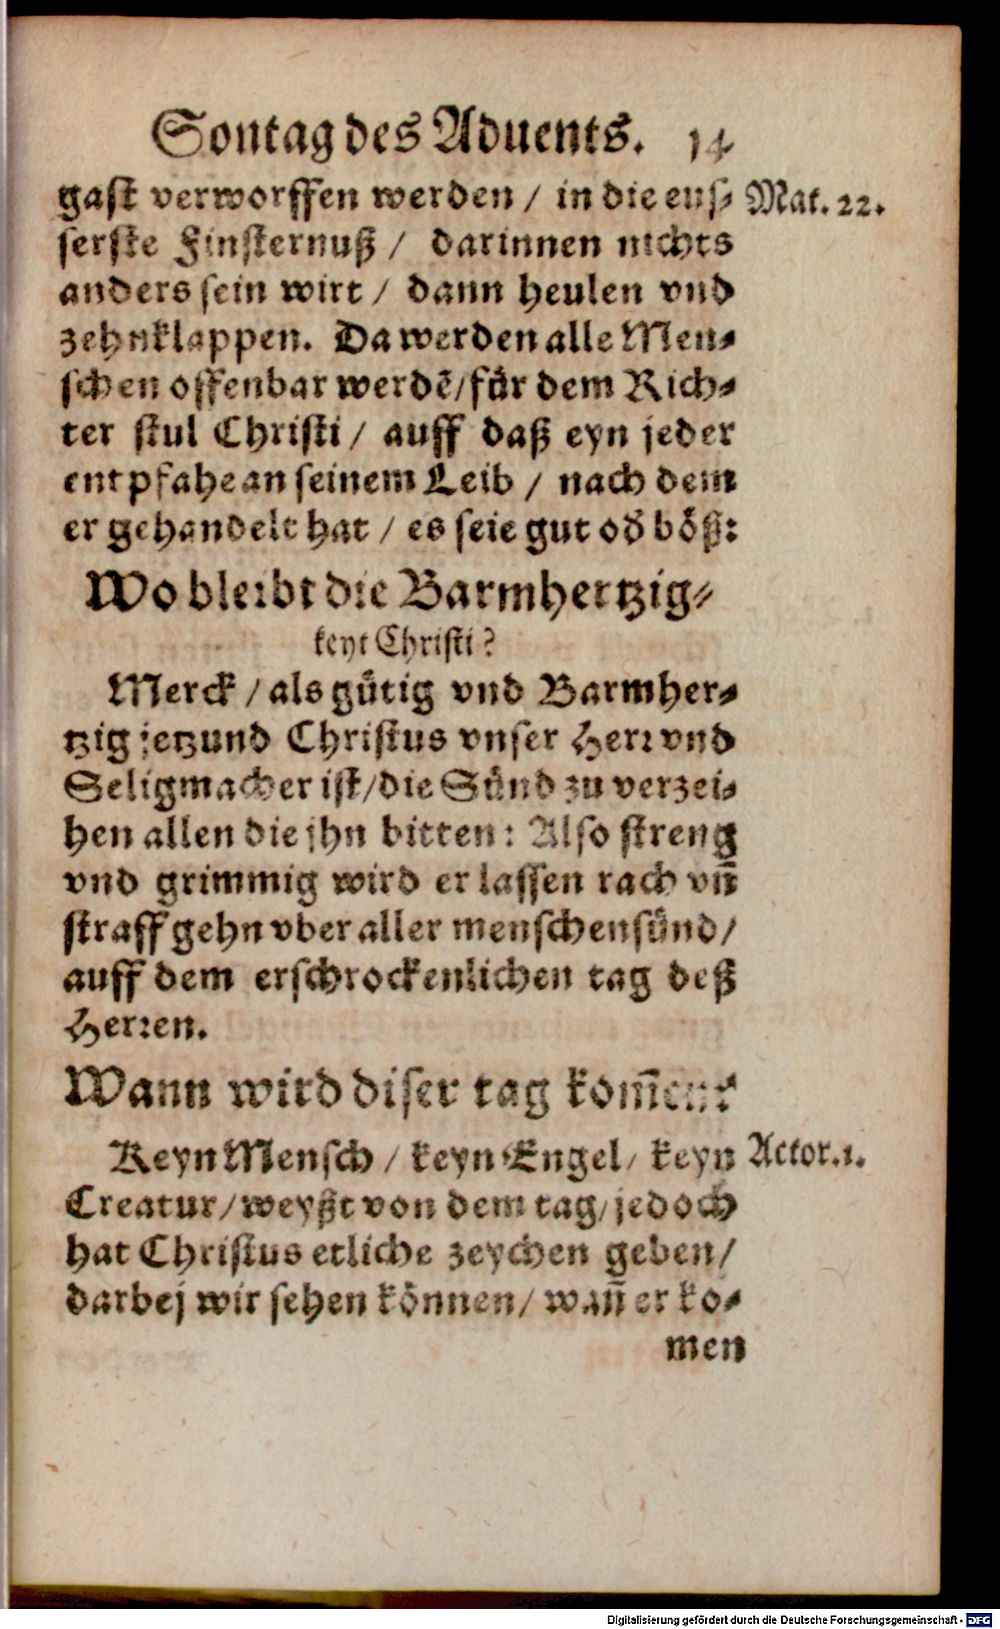 Sontag des Aduents. 14
gast verworffen werden / in die eus⸗ Mat. 22.
serste Finsternuß / darinnen nichts
anders sein wirt / dann heulen vnd
zehnklappen. Da werden alle Men⸗
schen offenbar werdē/für dem Rich⸗
ter stul Christi / auff daß eyn jeder
entpfahe an seinem Leib / nach dem
er gehandelt hat / es seie gut od̄ böß:
Wo bleibt die Barmhertzig⸗
keyt Christi?
Merck / als gütig vnd Barmher⸗
tzig jetzund Christus vnser Herr vnd
Seligmacher ist/die Sünd zu verzei⸗
hen allen die jhn bitten: Also streng
vnd grimmig wird er lassen rach vn̄
straff gehn vber aller menschen sünd/
auff dem erschrockenlichen tag deß
Herren.
Wann wird diser tag kom̄en?
Keyn Mensch / keyn Engel/ keyn Actor. 1.
Creatur/weyßt von dem tag/jedoch
hat Christus etliche zeychen geben/
darbej wir sehen können/ wan̄ er ko⸗
men
Digitalisierung gefördert durch die Deutsche Forschungsgemeinschaft - DFG